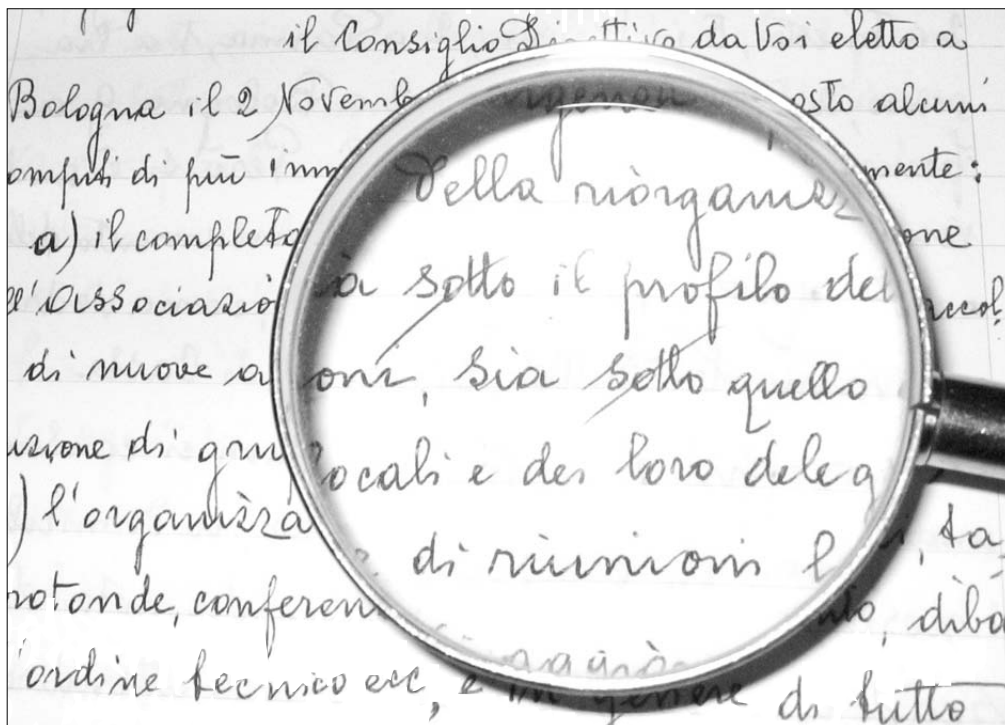 il Consiglio Direttivo da Voi eletto a
Bologna il 2 Novemb osto alcuni
di più mente:
a) il completo della riorganizz one
ll'Associazio ia sotto il profilo del
di nuove a oni, sia sotto quello
uzione di grup locali e dei loro deleg
) l'organizza di riunioni l ta
rotonde, conferen diba
ordine tecnico ecc, e in genere di tutto